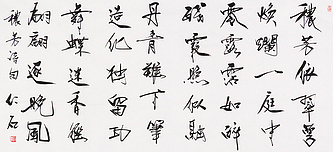 穠芳依翠萼
焕爛一庭中
零露霑如醉
殘霞照似融
丹青難下筆
造化獨留功
舞蝶迷香徑
翩翩逐晚風
穠芳詩句 仁石